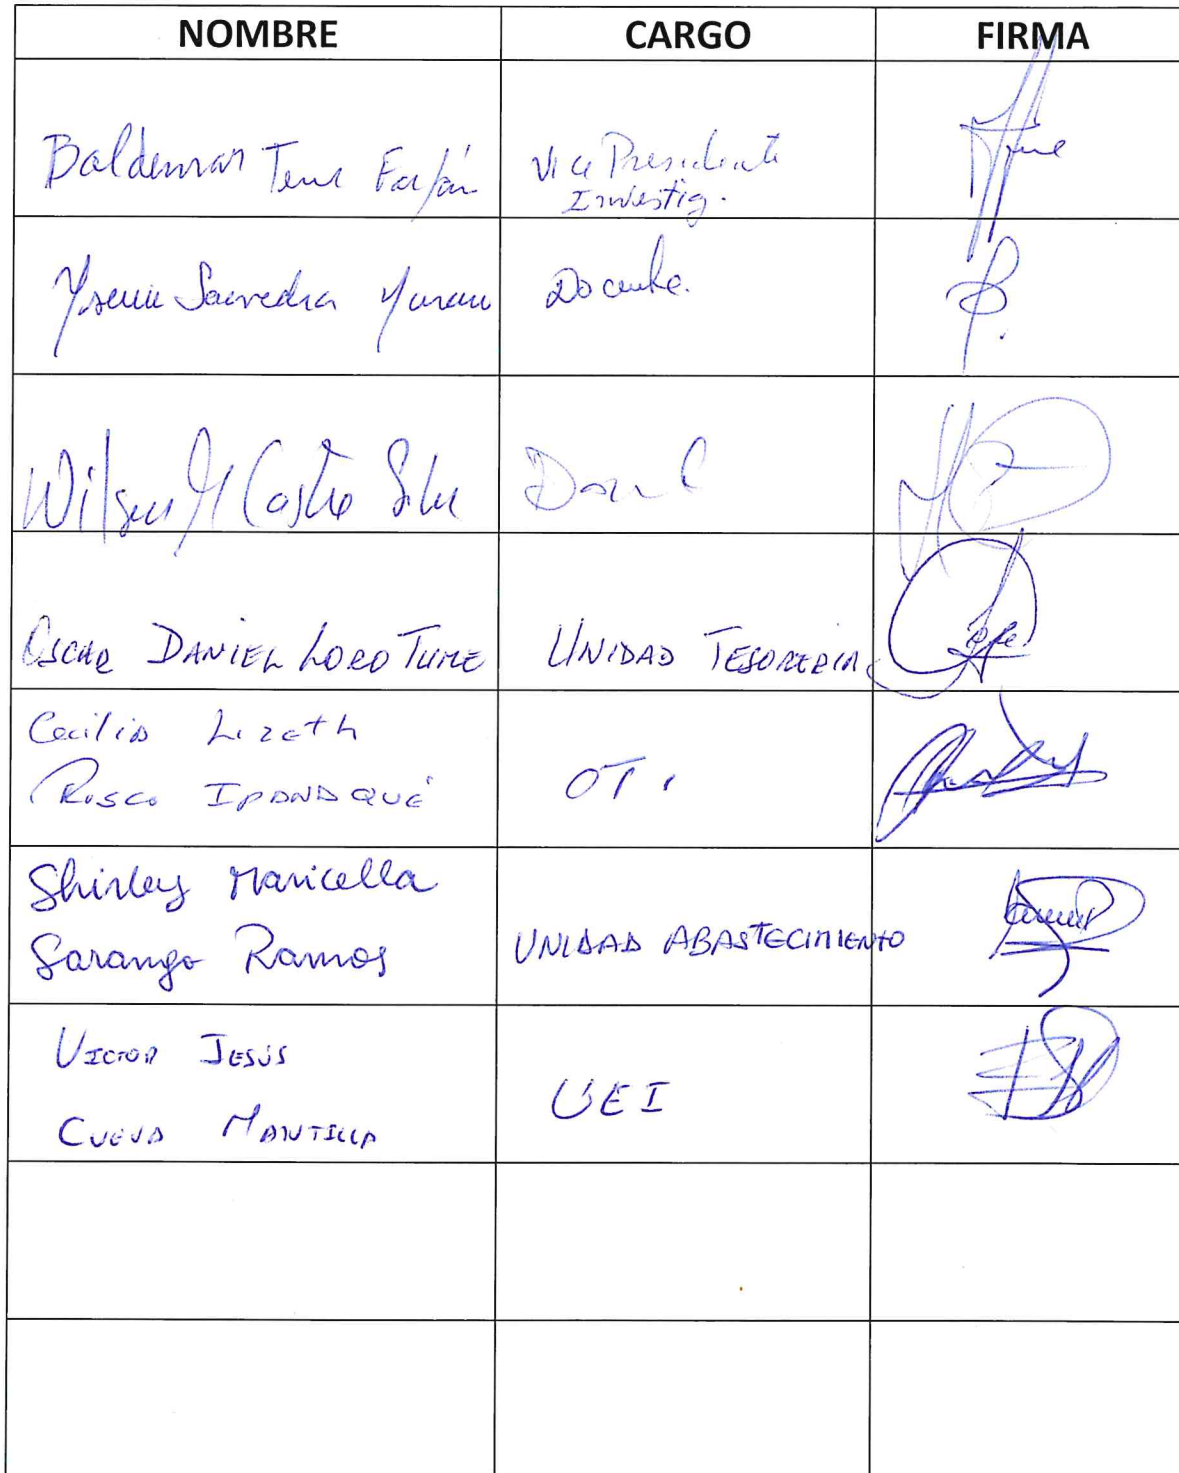 NOMBRE CARGO FIRMA
Baldemar Farfán Vice Presidente
Investig.
Saavedra Docente.
Wilson M Castro Silva
OSCAR DANIEL LORO TUME UNIDAD TESORERIA
Cecilia Lizeth
Risco IPANAQUÉ OTI
Shirley Maricella
Sarango Ramos UNIDAD ABASTECIMIENTO
VICTOR JESÚS
CUEVA MANTILLA UEI